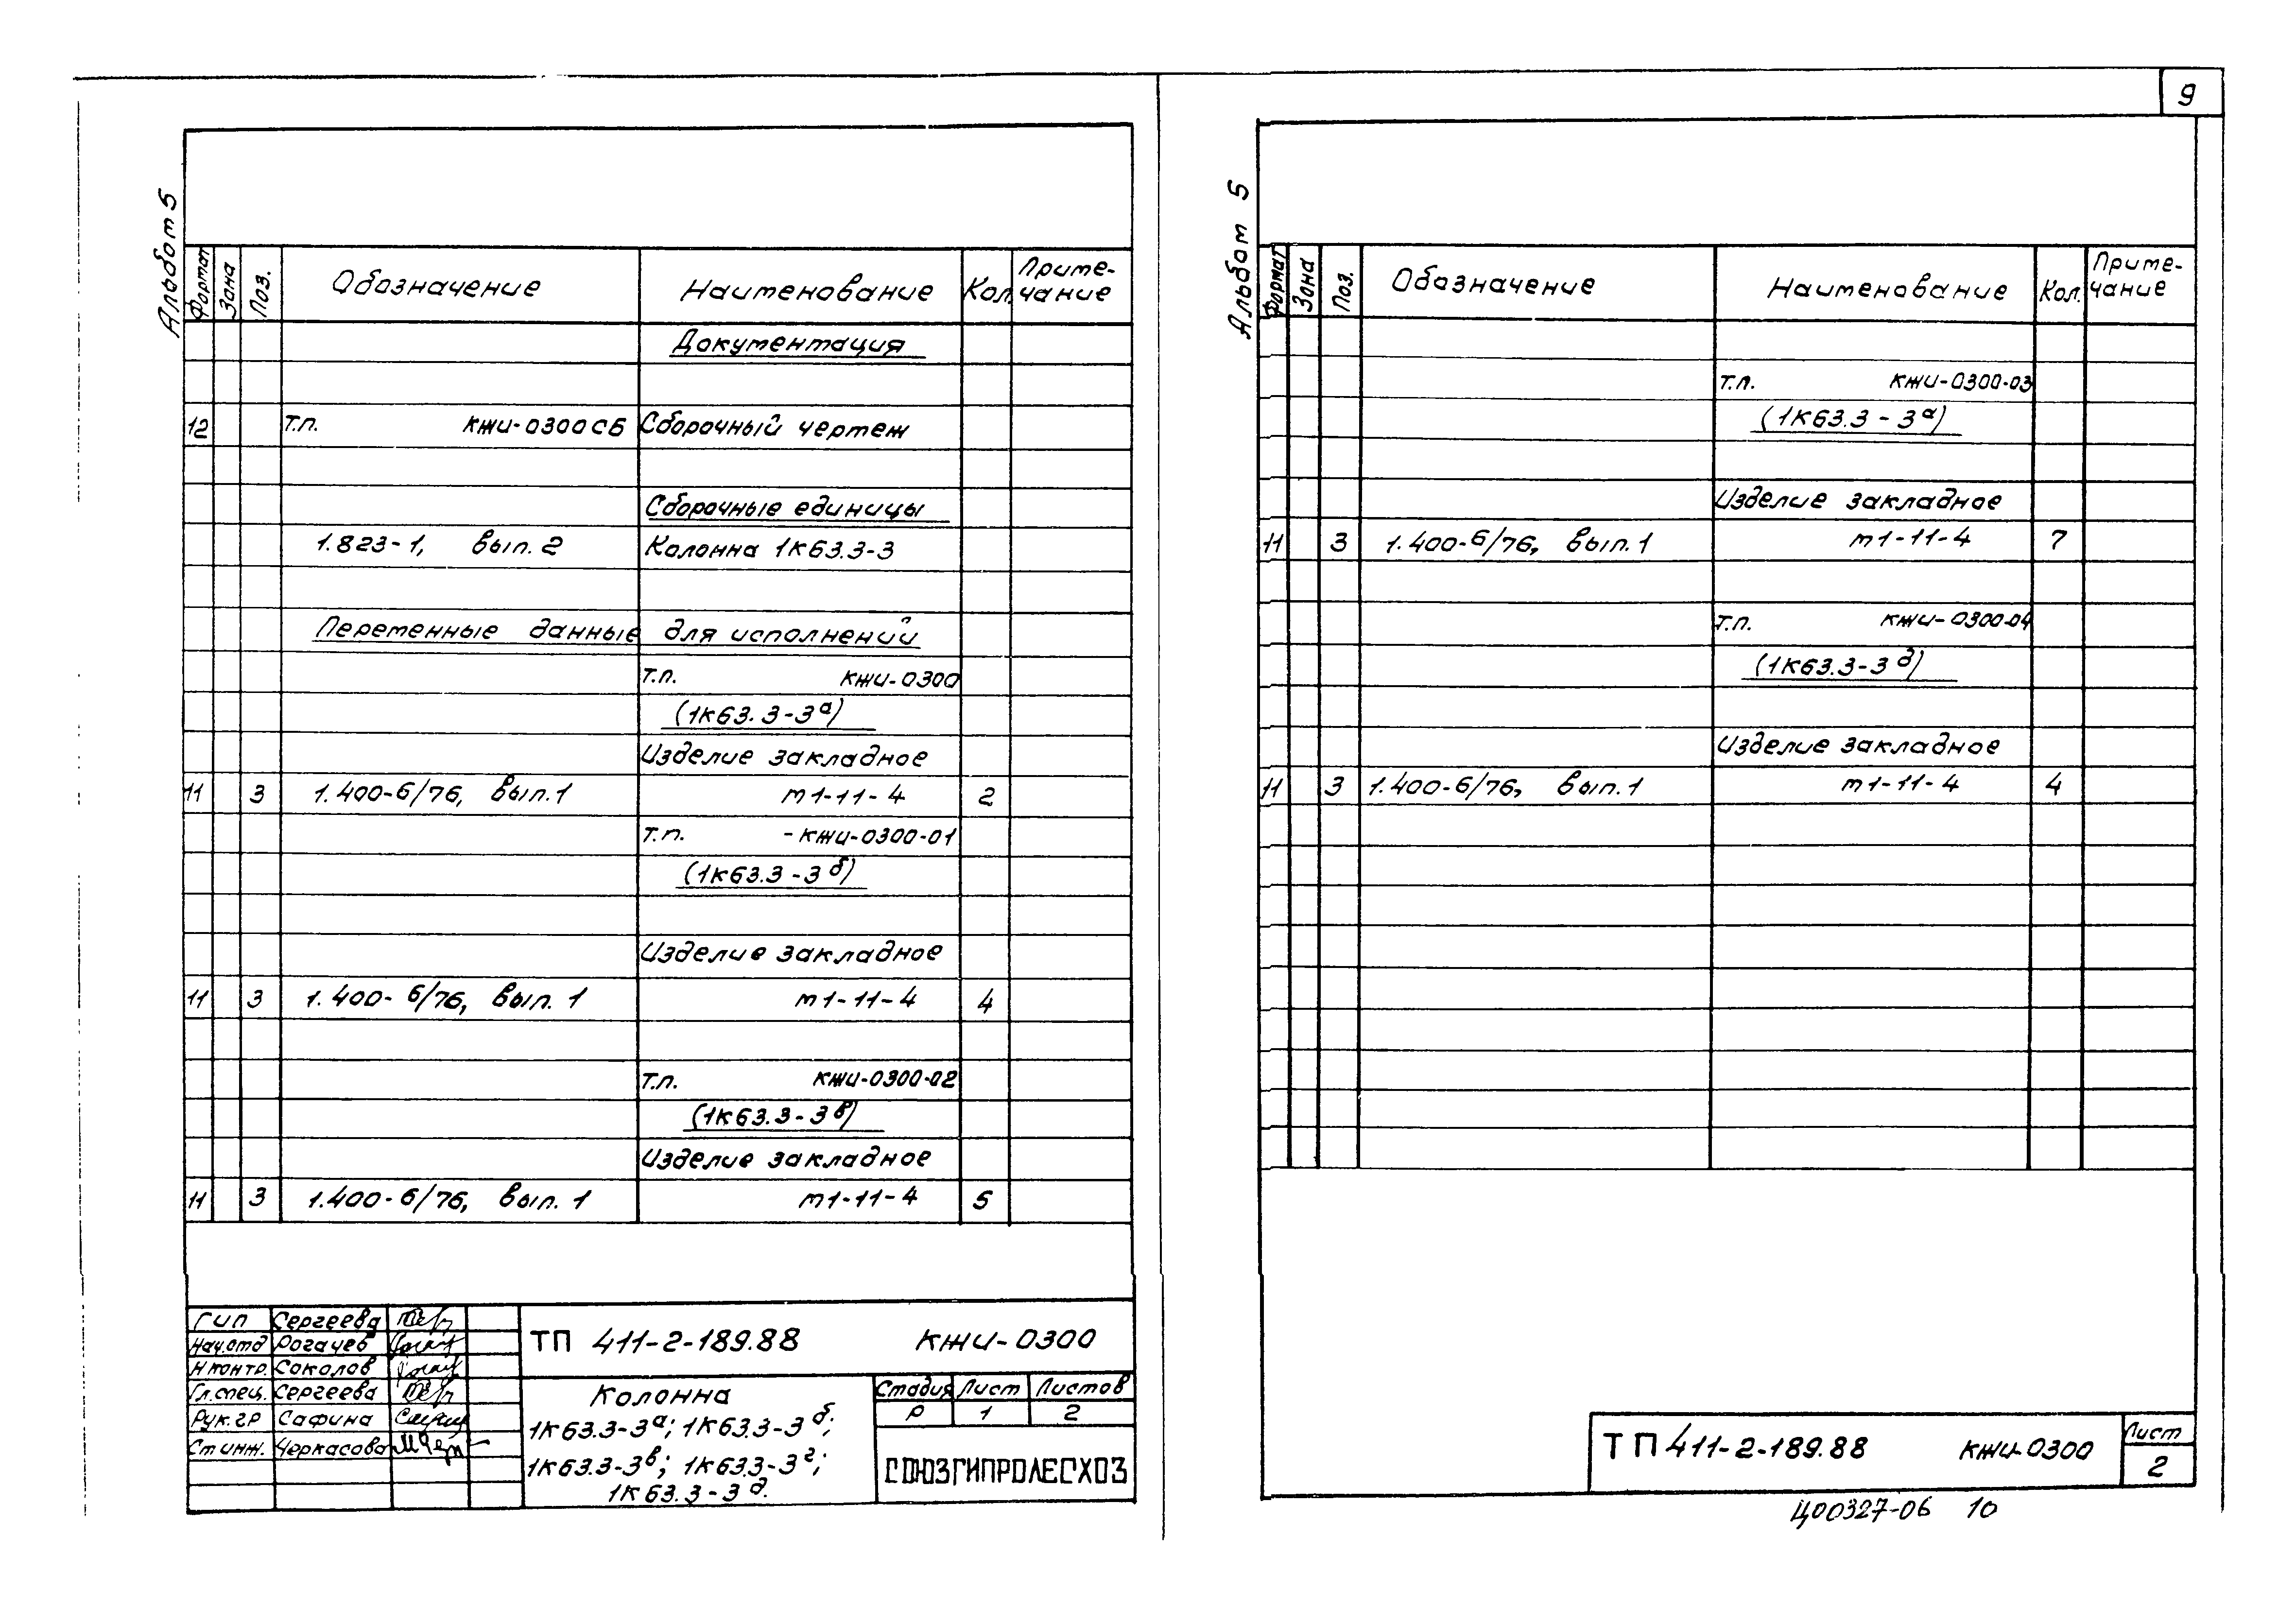 9
Альбом 5
Формат Зона Поз. Обозначение Наименование Кол. Приме-чание
Документация
12 Т.П. КЖИ-0300СБ Сборочный чертеж
Сборочные единицы
1.823-1, вып. 2 Колонна 1К63.3-3
Переменные данные для исполнений
Т.П. КЖИ-0300
(1К63.3-3а)
Изделие закладное
11 3 1.400-6/76, вып.1 м1-11-4 2
Т.П. -КЖИ-0300-01
(1К63.3-3б)
Изделие закладное
11 3 1.400-6/76, вып. 1 м1-11-4 4
Т.П. КЖИ-0300-02
(1К63.3-3в)
Изделие закладное
11 3 1.400-6/76, вып. 1 м1-11-4 5
ГИП Сергеева
Нач.отд Рогачев
Н.контр. Соколов
Гл.спец. Сергеева
Рук.гр Сафина
Ст.инж. Черкасова
ТП 411-2-189.88 КЖИ-0300
Колонна
1К63.3-3а; 1К63.3-3б;
1К63.3-3в; 1К63.3-3г;
1К63.3-3д.
Стадия Лист Листов
Р 1 2
СОЮЗГИПРОЛЕСХОЗ
Альбом 5
Формат Зона Поз. Обозначение Наименование Кол. Приме-чание
Т.П. КЖИ-0300-03
(1К63.3-3а)
Изделие закладное
11 3 1.400-6/76, вып.1 м1-11-4 7
Т.П. КЖИ-0300-04
(1К63.3-3д)
Изделие закладное
11 3 1.400-6/76, вып.1 м1-11-4 4
ТП 411-2-189.88 КЖИ-0300
Лист
2
Ц00327-06 10